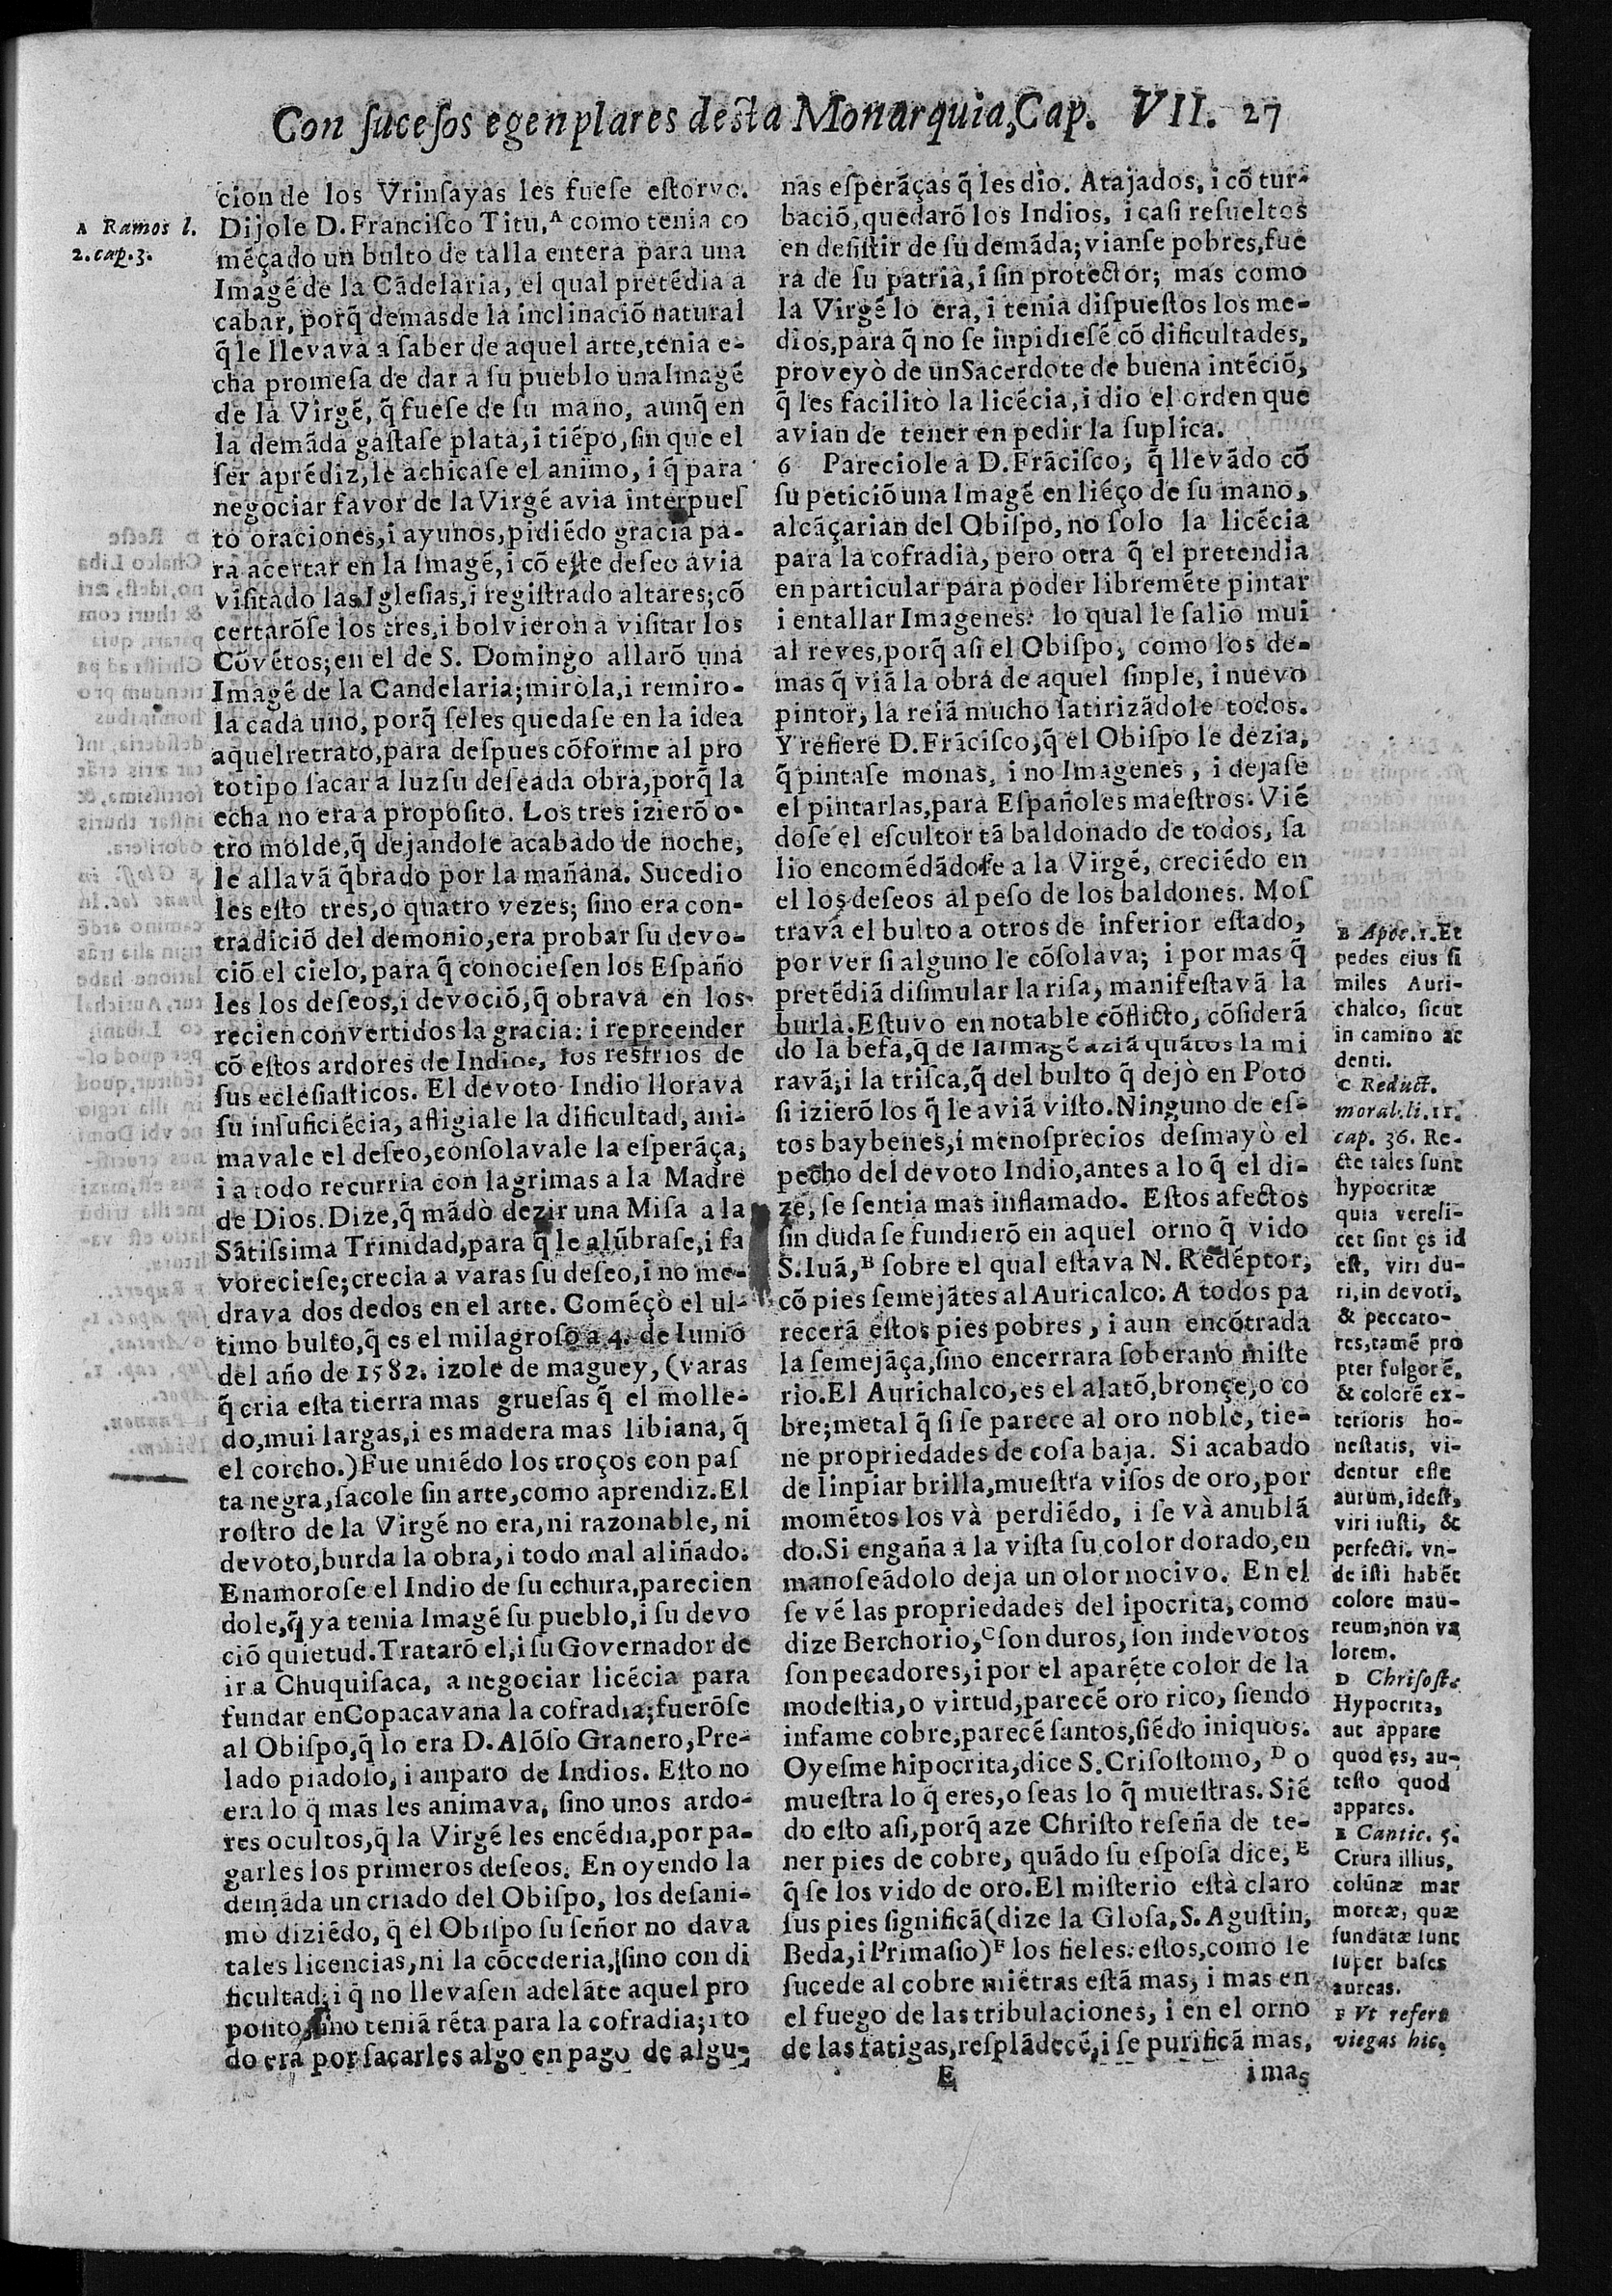 Con ſuceſos egenplares deſta Monarquia, Cap. VII. 27
A Ramos l.
2. cap. 3.
cion de los Vrinſayas les fueſe eſtorvo.
Dijole D. Franciſco Titu, A como tenia co
mẽçado un bulto de talla entera para una
Imagẽ de la Cãdelaria, el qual pretẽdia a
cabar, porq̃ demas de la inclinaciõ natural
q̃ le llevava a ſaber de aquel arte, tenia e-
cha promeſa de dar a ſu pueblo una Imagẽ
de la Virgẽ, q̃ fueſe de ſu mano, aunq̃ en
la demãda gaſtaſe plata, i tiẽpo, ſin que el
ſer aprẽdiz, le achicaſe el animo, i q̃ para
negociar favor de la Virgẽ avia interpueſ
to oraciones, i ayunos, pidiẽdo gracia pa-
ra acertar en la Imagẽ, i cõ eſte deſeo avia
viſitado las Igleſias, i regiſtrado altares; cõ
certarõſe los tres, i bolvieron a viſitar los
Cõvẽtos; en el de S. Domingo allarõ una
Imagẽ de la Candelaria; miròla, i remiro-
la cada uno, porq̃ ſeles quedaſe en la idea
aquel retrato, para deſpues cõforme al pro
totipo ſacar a luz ſu deſeada obra, porq̃ la
echa no era a propoſito. Los tres izierõ o-
tro molde, q̃ dejandole acabado de noche,
le allavã q̃brado por la mañana. Sucedio
les eſto tres, o quatro vezes; ſino era con-
tradiciõ del demonio, era probar ſu devo-
ciõ el cielo, para q̃ conocieſen los Eſpaño
les los deſeos, i devociõ, q̃ obrava en los
recien convertidos la gracia: i repreender
cõ eſtos ardores de Indios, los resfrios de
ſus ecleſiaſticos. El devoto Indio llorava
ſu inſuficiẽcia, afligiale la dificultad, ani-
mavale el deſeo, conſolavale la eſperãça,
i a todo recurria con lagrimas a la Madre
de Dios. Dize, q̃ mãdò dezir una Miſa a la
Sãtiſſima Trinidad, para q̃ le alũbraſe, i fa
vorecieſe; crecia a varas ſu deſeo, i no me-
drava dos dedos en el arte. Comẽçò el ul-
timo bulto, q̃ es el milagroſo a 4. de Iunio
del año de 1582. izole de maguey, (varas
q̃ cria eſta tierra mas grueſas q̃ el molle-
do, mui largas, i es madera mas libiana, q̃
el corcho.) Fue uniẽdo los troços con paſ
ta negra, ſacole ſin arte, como aprendiz. El
roſtro de la Virgẽ no era, ni razonable, ni
devoto, burda la obra, i todo mal aliñado.
Enamoroſe el Indio de ſu echura, parecien
dole, q̃ ya tenia Imagẽ ſu pueblo, i ſu devo
ciõ quietud. Tratarõ el, i ſu Governador de
ir a Chuquiſaca, a negociar licẽcia para
fundar en Copacavana la cofradia; fuerõſe
al Obiſpo, q̃ lo era D. Alõſo Granero, Pre-
lado piadoſo, i anparo de Indios. Eſto no
era lo q̃ mas les animava, ſino unos ardo-
res ocultos, q̃ la Virgẽ les encẽdia, por pa-
garles los primeros deſeos. En oyendo la
demãda un criado del Obiſpo, los deſani-
mò diziẽdo, q̃ el Obiſpo ſu ſeñor no dava
tales licencias, ni la cõcederia, ſino con di
ficultad; i q̃ no llevaſen adelãte aquel pro
poſito, ſino teniã rẽta para la cofradia; i to
do era por ſacarles algo en pago de algu-
nas eſperãças q̃ les diò. Atajados, i cõ tur-
baciõ, quedarõ los Indios, i caſi reſueltos
en deſiſtir de ſu demãda; vianſe pobres, fue
ra de ſu patria, i ſin protector; mas como
la Virgẽ lo era, i tenia diſpueſtos los me-
dios, para q̃ no ſe inpidieſẽ cõ dificultades,
proveyò de un Sacerdote de buena intẽciõ,
q̃ les facilitò la licẽcia, i dio el orden que
avian de tener en pedir la ſuplica.
6 Pareciole a D. Frãciſco, q̃ llevãdo cõ
ſu peticiõ una Imagẽ en liẽço de ſu mano,
alcãçarian del Obiſpo, no ſolo la licẽcia
para la cofradia, pero otra q̃ el pretendia
en particular para poder libremẽte pintar
i entallar Imagenes: lo qual le ſalio mui
al reves, porq̃ aſi el Obiſpo, como los de-
mas q̃ viã la obra de aquel ſinple, i nuevo
pintor, la reiã mucho ſatirizãdole todos.
Y refiere D. Frãciſco, q̃ el Obiſpo le dezia,
q̃ pintaſe monas, i no Imagenes, i dejaſe
el pintarlas, para Eſpañoles maeſtros. Viẽ
doſe el eſcultor tã baldonado de todos, ſa
lio encomẽdãdoſe a la Virgẽ, creciẽdo en
el los deſeos al peſo de los baldones. Moſ
travã el bulto a otros de inferior eſtado,
por ver ſi alguno le cõſolava; i por mas q̃
pretẽdiã diſimular la riſa, manifeſtavã la
burla. Eſtuvo en notable cõflicto, cõſiderã
do la befa, q̃ de la Imagẽ aziã quãtos la mi
ravã, i la triſca, q̃ del bulto q̃ dejò en Poto
ſi izierõ los q̃ le aviã viſto. Ninguno de eſ-
tos baybenes, i menoſprecios deſmayò el
pecho del devoto Indio, antes a lo q̃ el di-
ze, ſe ſentia mas inflamado. Eſtos afectos
ſin duda ſe fundierõ en aquel orno q̃ vido
S. Iuã, B ſobre el qual eſtava N. Redẽptor,
cõ pies ſemejãtes al Auricalco. A todos pa
recerã eſtos pies pobres, i aun encõtrada
la ſemejãça, ſino encerrara ſoberano miſte
rio. El Aurichalco, es el alatõ, bronçe, o co
bre; metal q̃ ſi ſe parece al oro noble, tie-
ne propriedades de coſa baja. Si acabado
de linpiar brilla, mueſtra viſos de oro, por
momẽtos los và perdiẽdo, i ſe và anublã
do. Si engaña a la viſta ſu color dorado, en
manoſeãdolo deja un olor nocivo. En el
ſe vẽ las propriedades del ipocrita, como
dize Berchorio, C ſon duros, ſon indevotos
ſon pecadores, i por el aparẽte color de la
modeſtia, o virtud, parecẽ oro rico, ſiendo
infame cobre, parecẽ ſantos, ſiẽdo iniquos.
Oyeſme hipocrita, dice S. Criſoſtomo, D o
mueſtra lo q̃ eres, o ſeas lo q̃ mueſtras. Siẽ
do eſto aſi, porq̃ aze Chriſto reſeña de te-
ner pies de cobre, quãdo ſu eſpoſa dice, E
q̃ ſe los vido de oro. El miſterio eſtà claro
ſus pies ſignificã (dize la Gloſa, S. Aguſtin,
Beda, i Primaſio) F los fieles: eſtos, como le
ſucede al cobre miẽtras eſtã mas, i mas en
el fuego de las tribulaciones, i en el orno
de las fatigas, reſplãdecẽ, i ſe purificã mas,
E i mas
B Apoc. 1. Et
pedes eius ſi
miles Auri-
chalco, ſicut
in camino ar
denti.
C Reduct.
moral. li. 11.
cap. 36. Re-
cte tales ſunt
hypocritæ
quia vereſi-
cet ſint ęs id
eſt, viri du-
ri, in devoti,
& peccato-
res, tamẽ pro
pter fulgorẽ,
& colorẽ ex-
terioris ho-
neſtatis, vi-
dentur eſſe
aurum, ideſt,
viri iuſti, &
perfecti. vn-
de iſti habẽt
colore mau-
reum, non va
lorem.
D Chriſoſt.
Hypocrita,
aut appare
quod es, au-
teſto quod
appares.
E Cantic. 5.
Crura illius,
colũnæ mar
moreæ, quæ
fundatæ ſunt
ſuper baſes
aureas.
F Vt refert
viegas hic.